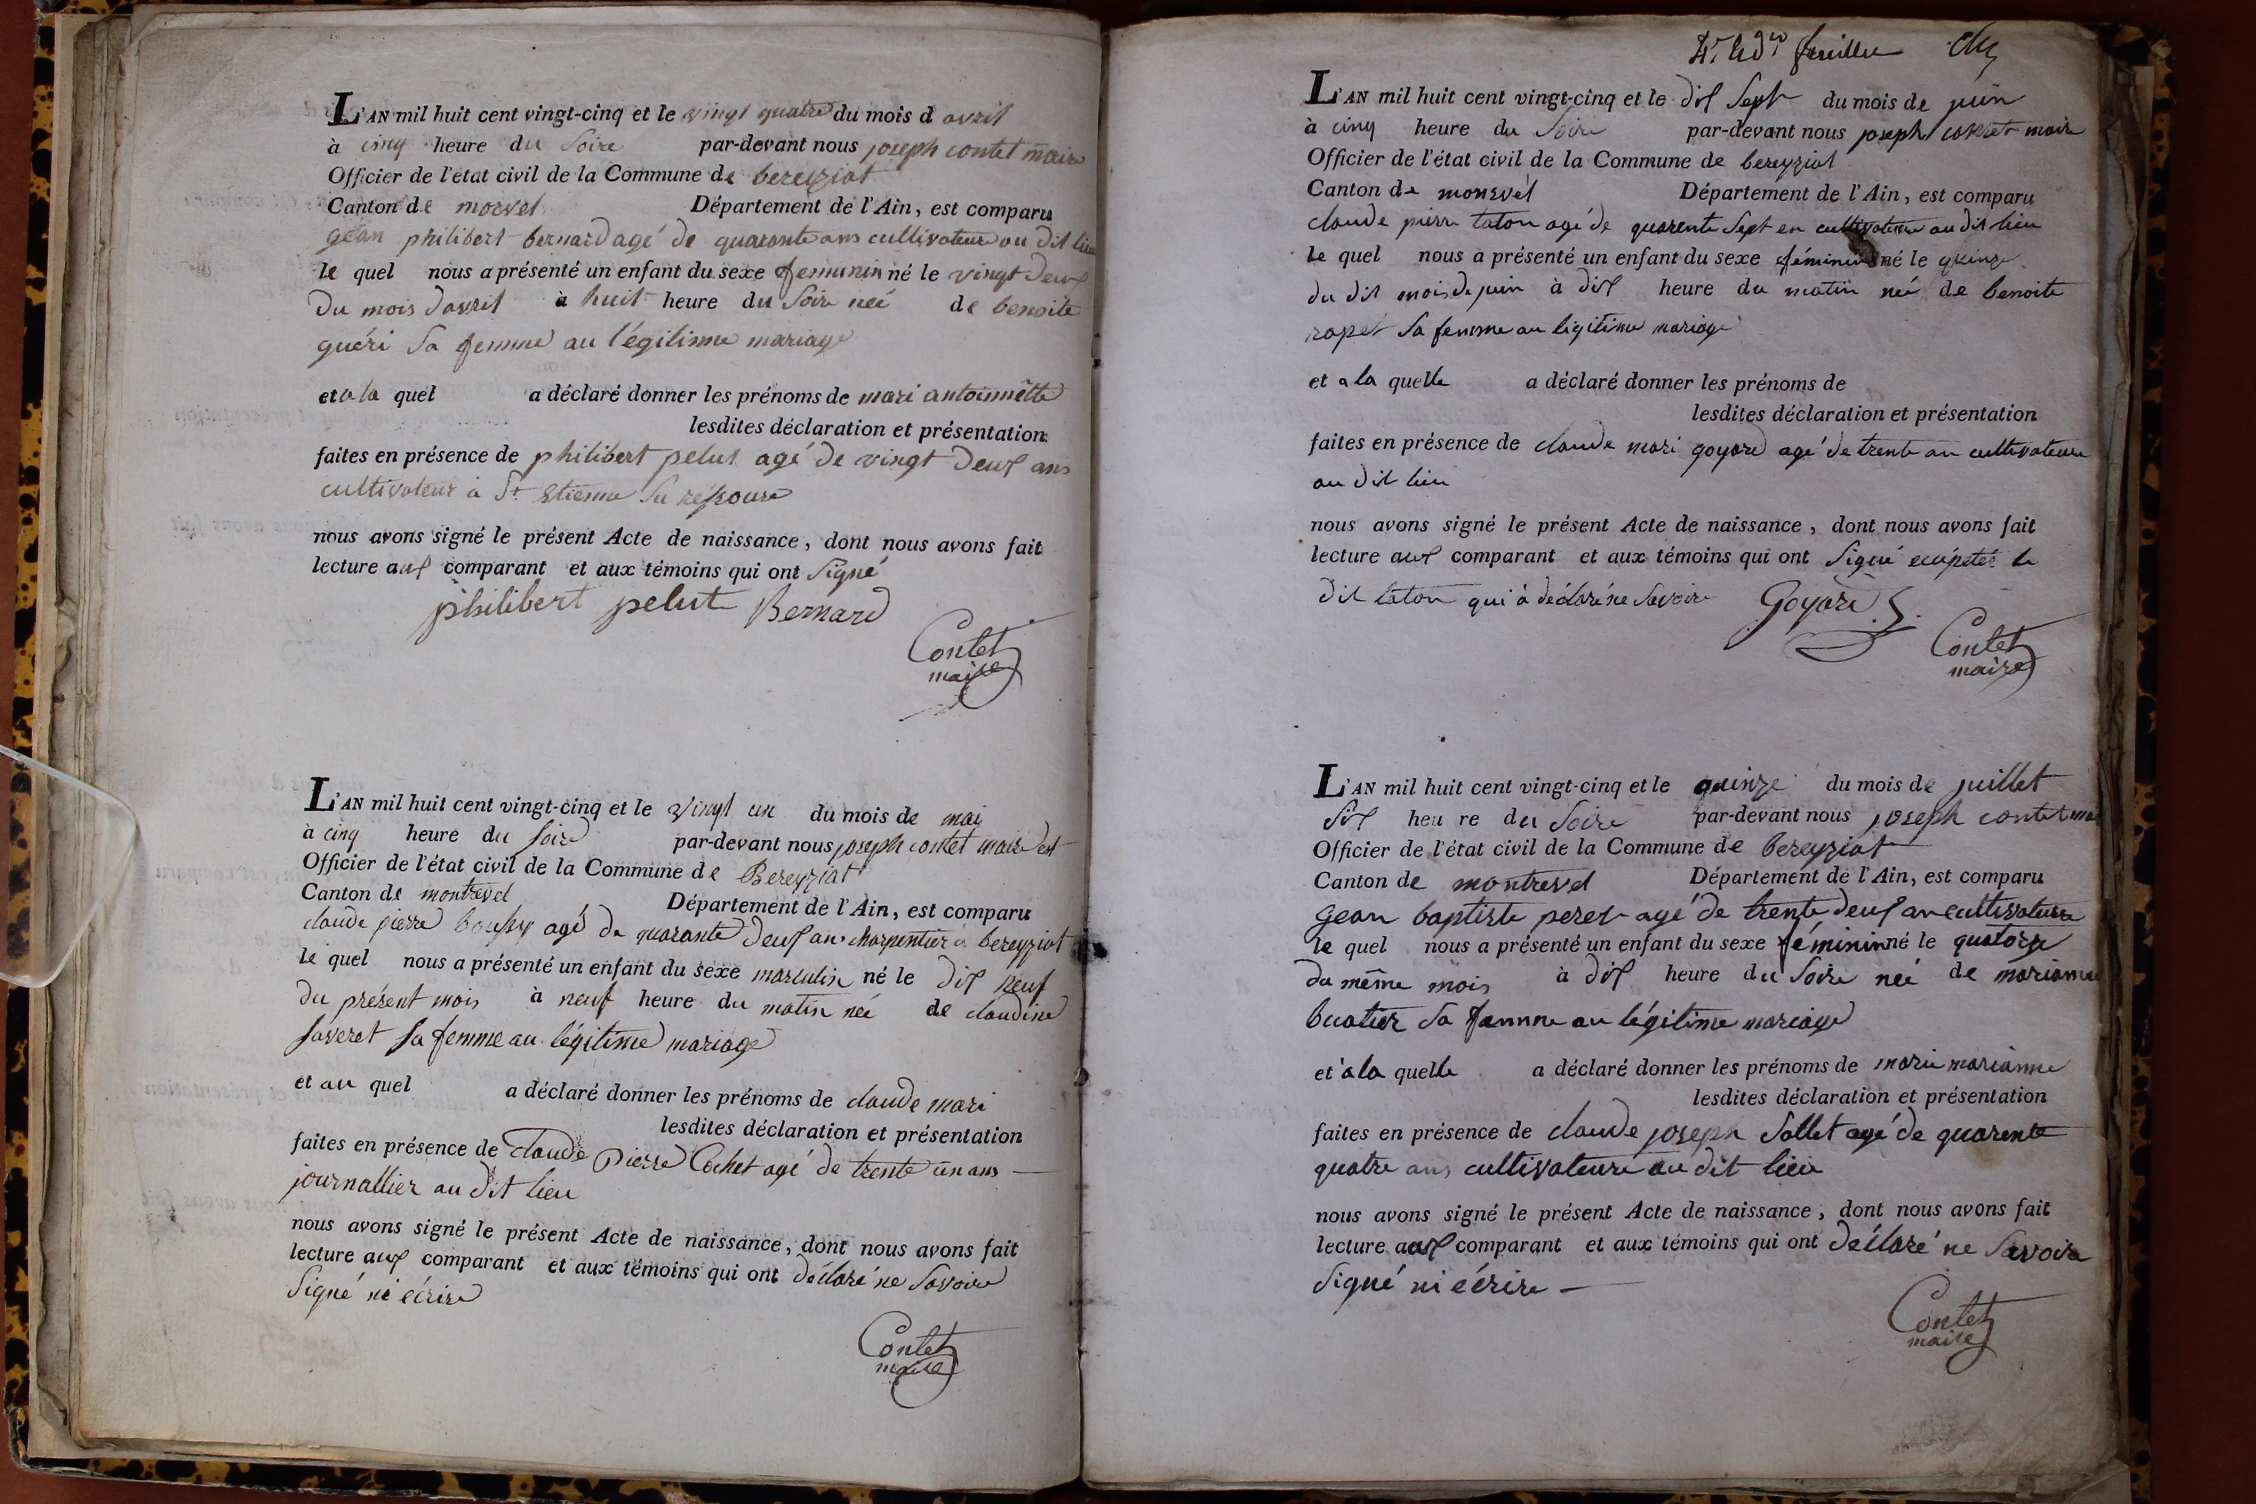 L'AN mil huit cent vingt-cinq et le vingt quatre du mois d avril
à cinq heure du Soire par-devant nous joseph contet maire
Officier de l'état civil de la Commune de bereyziat
Canton de morvel Département de l'Ain, est comparu
gean philibert bernard agé de quarante ans cultivateure au dit lieu
le quel nous a présenté un enfant du sexe femininin né le vingt deux
du mois davril à huit heure du Soire neé de benoite
guéri Sa femme au l'égitime mariage
et a la quel a déclaré donner les prénoms de mari antoinnètte
lesdites déclaration et présentation
faites en présence de philibert pelut agé de vingt deux ans
cultivateur à St Etienne Su
nous avons signé le présent Acte de naissance, dont nous avons fait
lecture aux comparant et aux témoins qui ont Signé
philibert pelut Bernard
Contet
maire
L'AN mil huit cent vingt-cinq et le vingt un du mois de mai
à cinq heure du soire par-devant nous joseph contet maire est
Officier de l'état civil de la Commune de Bereyziat
Canton de montrevel Département de l'Ain, est comparu
claude pierre agé de quarante deux ans charpentier à bereyziat
le quel nous a présenté un enfant du sexe masculin né le dix neuf
du présent mois à neuf heure du matin neé de claudine
saveret sa femme au légitime mariage
et au quel a déclaré donner les prénoms de claude mari
lesdites déclaration et présentation
faites en présence de claude Pierre Cochet agé de trente un ans
journallier au dit lieu
nous avons signé le présent Acte de naissance, dont nous avons fait
lecture aux comparant et aux témoins qui ont déclaré ne Savoire
Signé ni écrire
Contet
maire
feuillet
L'AN mil huit cent vingt-cinq et le dix Sept du mois de juin
à cinq heure du Soire par-devant nous joseph contet maire
Officier de l'état civil de la Commune de bereyziat
Canton de Département de l'Ain, est comparu
claude pierre taton agé de quarente Sept en cultivateure au dit lieu
le quel nous a présenté un enfant du sexe féminin né le quinze
du dit mois de juin à dix heure du matin neé de benoite
ropet Sa femme au légitime mariage
et a la quelle a déclaré donner les prénoms de
lesdites déclaration et présentation
faites en présence de claude mari goyard agé de trente an cultivateure
au dit lieu
nous avons signé le présent Acte de naissance, dont nous avons fait
lecture aux comparant et aux témoins qui ont Signé le
dit taton qui à déclaré ne Savoire Goyard
Contet
maire
L'AN mil huit cent vingt-cinq et le quinze du mois de juillet
Six heure du Soire par-devant nous joseph contet mai
Officier de l'état civil de la Commune de bereyziat
Canton de montrevel Département de l'Ain, est comparu
gean baptiste peret agé de trente deux an cultivateure
le quel nous a présenté un enfant du sexe féminin né le quatorze
du même mois à dix heure du Soire neé de marianne
buatier Sa famme au légitime mariage
et à la quelle a déclaré donner les prénoms de marie marianne
lesdites déclaration et présentation
faites en présence de claude joseph Sollet agé de quarente
quatre ans cultivateure au dit lieu
nous avons signé le présent Acte de naissance, dont nous avons fait
lecture aux comparant et aux témoins qui ont déclaré ne Savoire
Signé ni écrire
Contet
maire